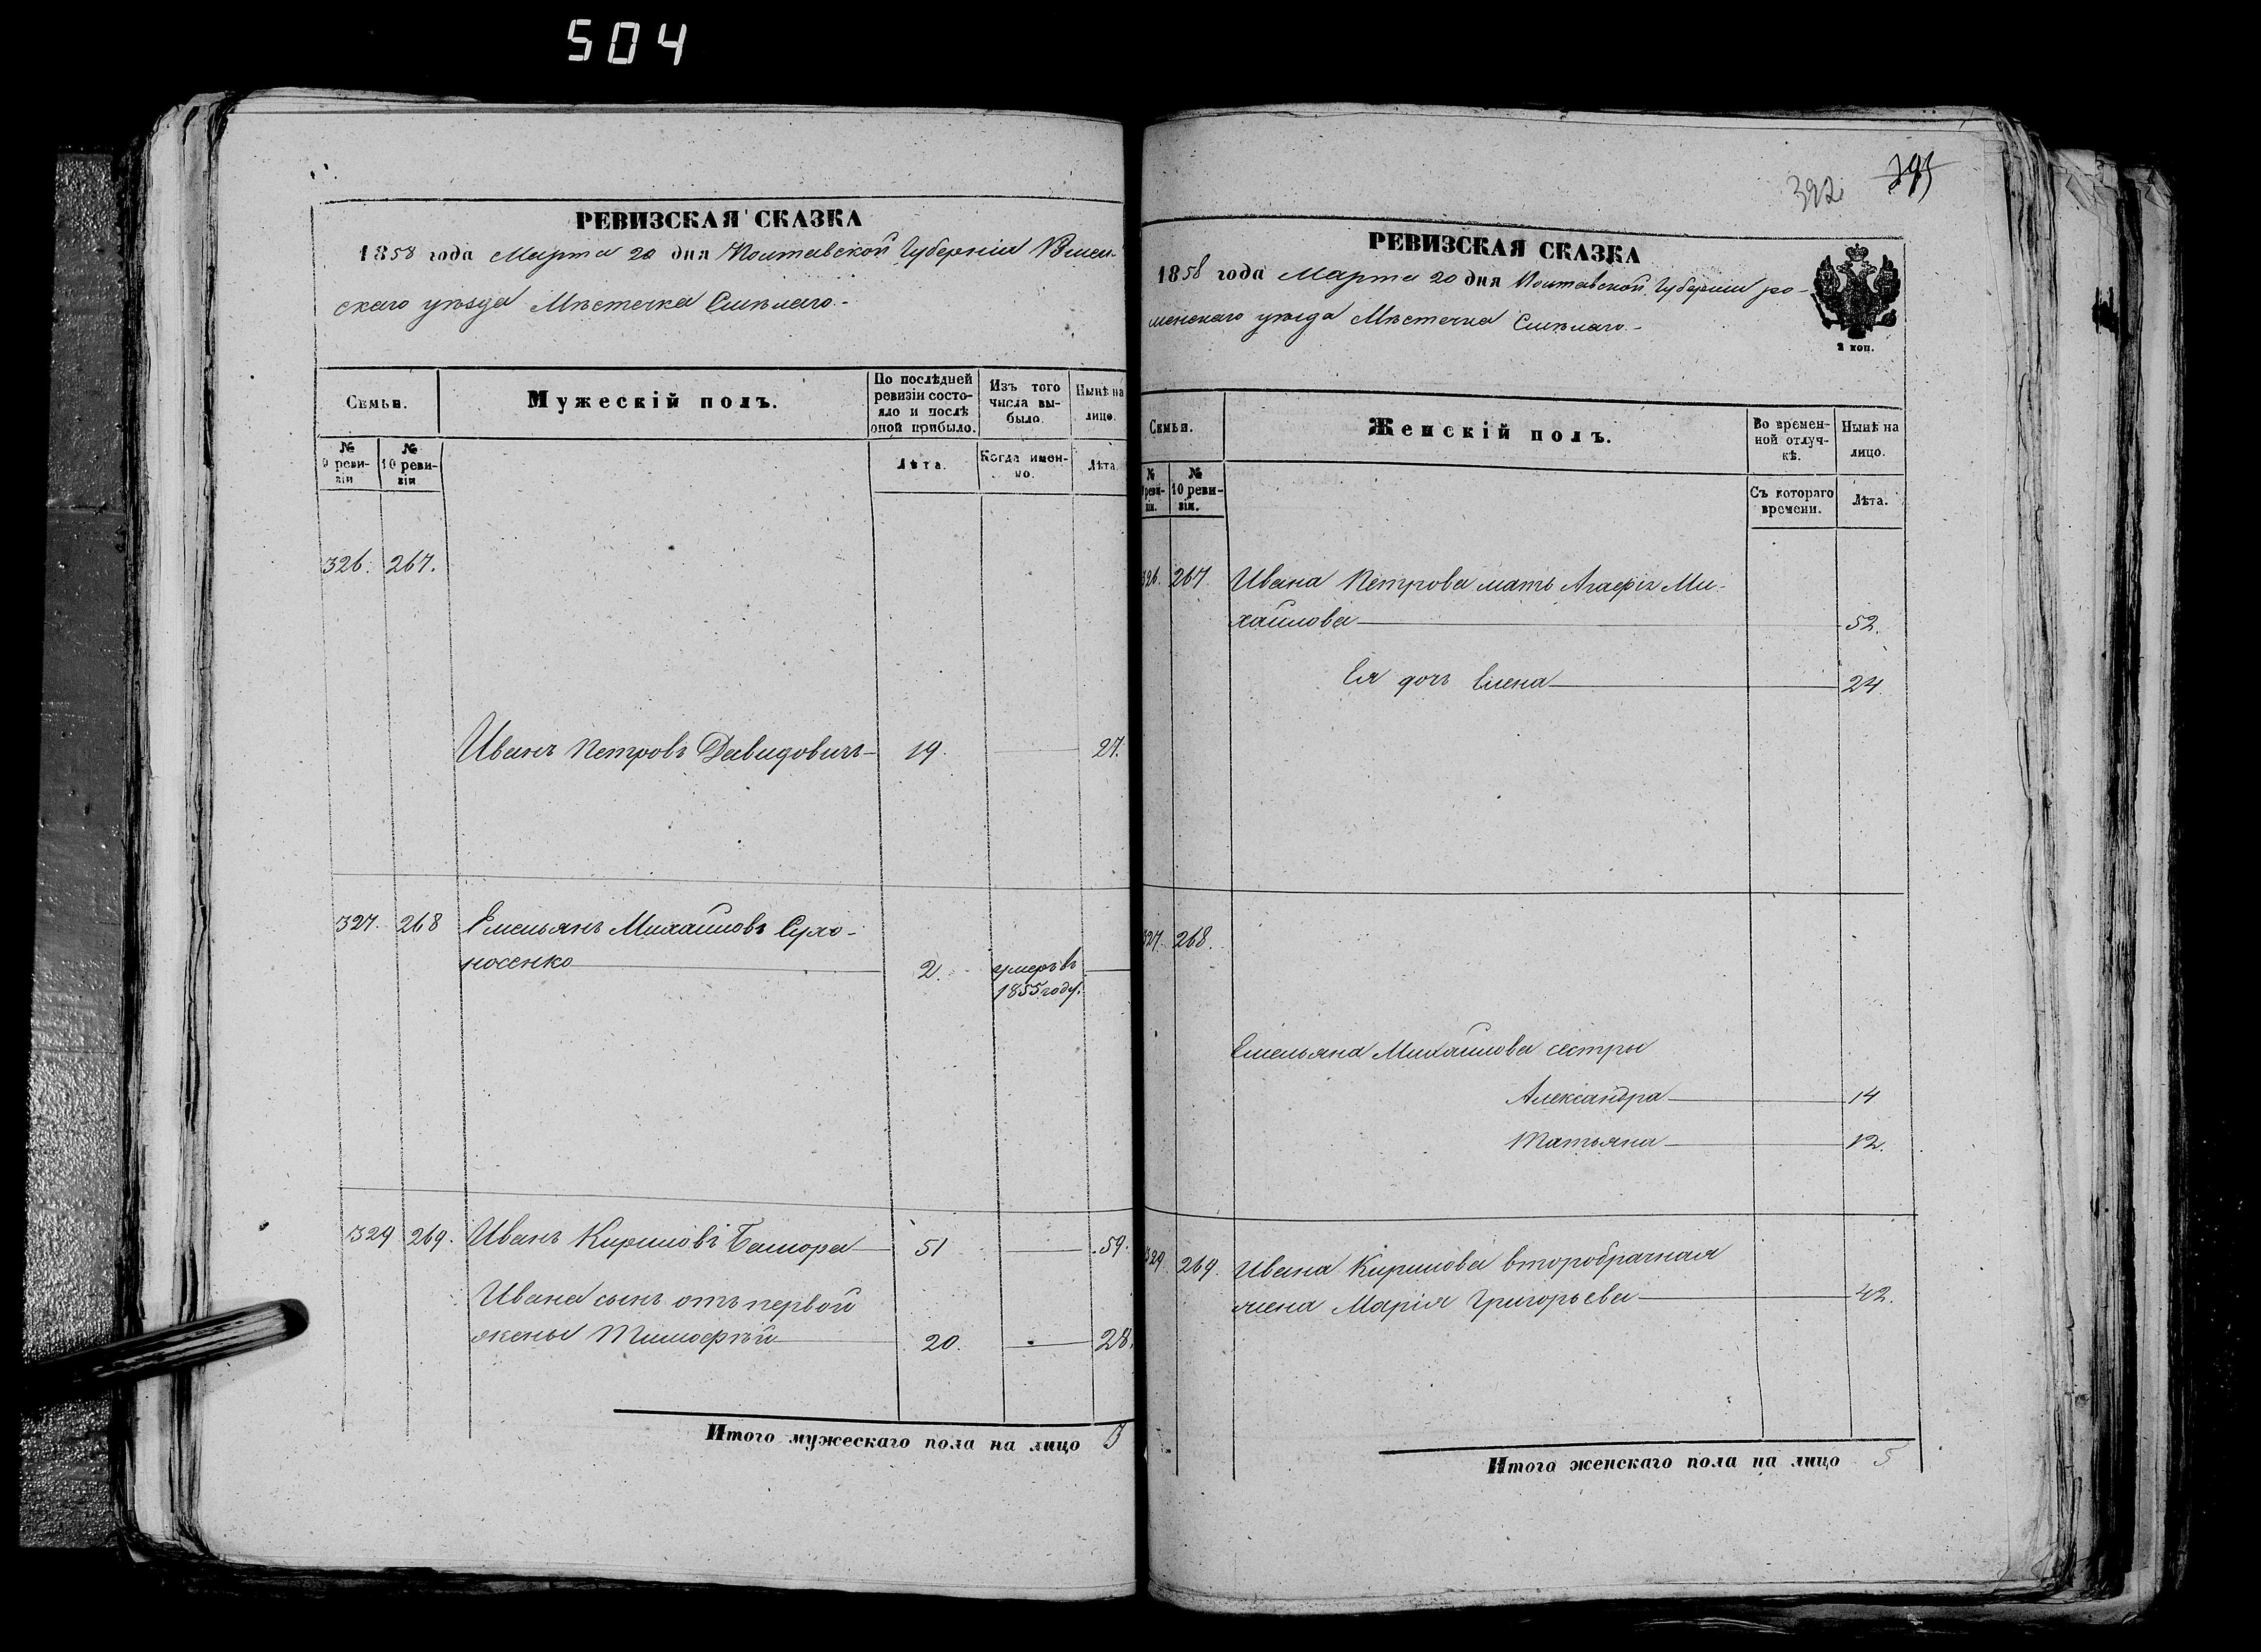 504
392
РЕВИЗСКАЯ СКАЗКА
1858 года Марта 20 дня Полтавской Губерніи Ромен-
скаго уѣзда Мѣстечка Смѣлаго.-
Семьи.
Мужескій полъ.
По послѣдней ревизіи состояло и послѣ оной прибыло.
Изъ того числа выбыло.
Нынѣ на лицо.
№ 9 ревизіи
№ 10 ревизіи
Лѣта.
Когда именно.
Лѣта.
326. 267.
Иванъ Петровъ Давидовичъ 19. 27.
327. 268 Емельянъ Михайловъ Сухо-
носенко 2. умеръ въ
1855 году.
329 269. Иванъ Кириловъ Башора 51 59.
Ивана сынъ отъ первой
жены Тимофѣй 20. 28.
Итого мужескаго пола на лицо 3
РЕВИЗСКАЯ СКАЗКА
1858 года Марта 20 дня Полтавской Губерніи Ро-
менскаго уѣзда Мѣстечка Смѣлаго.-
2 коп.
Семьи.
Женскій полъ.
Во временной отлучкѣ.
Нынѣ на лицо.
№ 9 ревизіи.
№ 10 ревизіи.
Съ котораго времени.
Лѣта.
326. 267. Ивана Петрова мать Агафія Ми-
хайлова 52.
Ея дочь Елена 24.
327. 268.
Емельяна Михайлова сестры
Александра 14
Татьяна 12.
329. 269. Ивана Кирилова второбрачная
жена Марія Григорьева 42.
Итого женскаго пола на лицо 5